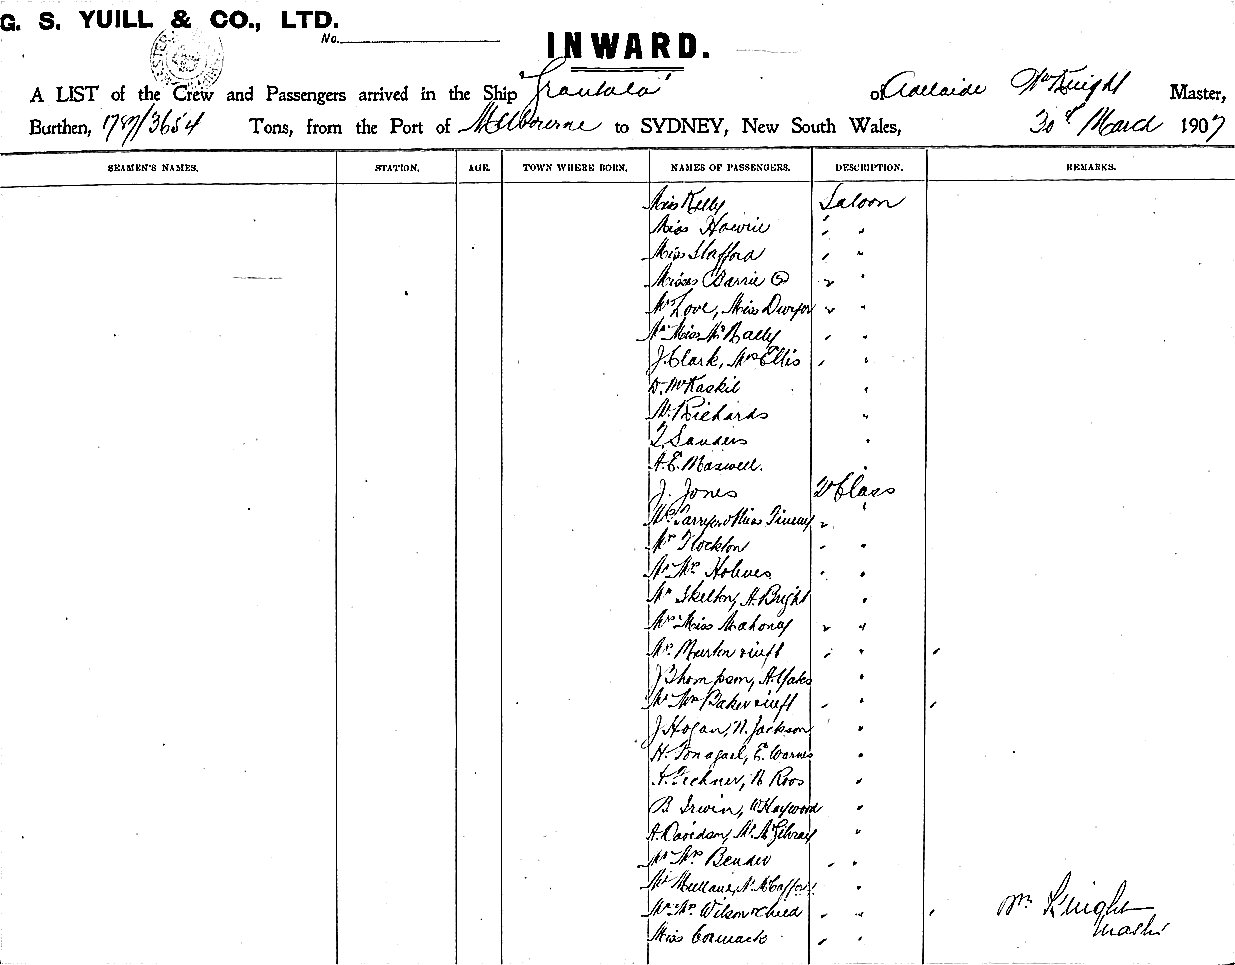 G. S. YUILL & CO., LTD.
No.
INWARD.
A LIST of the Crew and Passengers arrived in the Ship "Grantala" of Adelaide Wm Knight Master,
Burthen, 1797/3654 Tons, from the Port of Melbourne to SYDNEY, New South Wales, 30th March 1907
SEAMEN'S NAMES. STATION. AGE. TOWN WHERE BORN. NAMES OF PASSENGERS. DESCRIPTION. REMARKS.
Miss Kelly Saloon
Miss Howie " "
Miss Stafford " "
Misses Barrie " "
Mr Love, Miss Dwyer " "
Miss " "
J. Clark, Mrs Ellis " "
D. McKaskil "
W. Richards "
T. Sanders "
A. E. Maxwell. "
J. Jones 2nd Class
Miss " "
Mr Flockton " "
Mr Mrs Holmes " "
Mr Skelton, A. Bright "
Mrs Miss Mahoney " "
Mr. Martin & inft " " "
J Thompson, A. Yates "
Mr Mrs Baker & inft " " "
J Hogan, N. Jackson "
H. E. Warnes "
Roos "
B. Irwin, W Haywood "
A. Davidson, "
Mr Mrs Bender " "
"
Mr. Mrs. Wilson & Child " " "
Miss Cormack " "
Wm Knight
Master